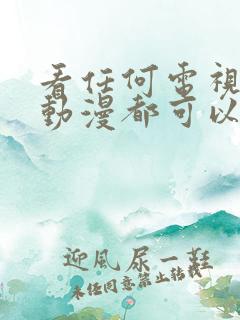 看任何電視
動漫都可以
迎風尿一鞋
未任同意禁止轉載